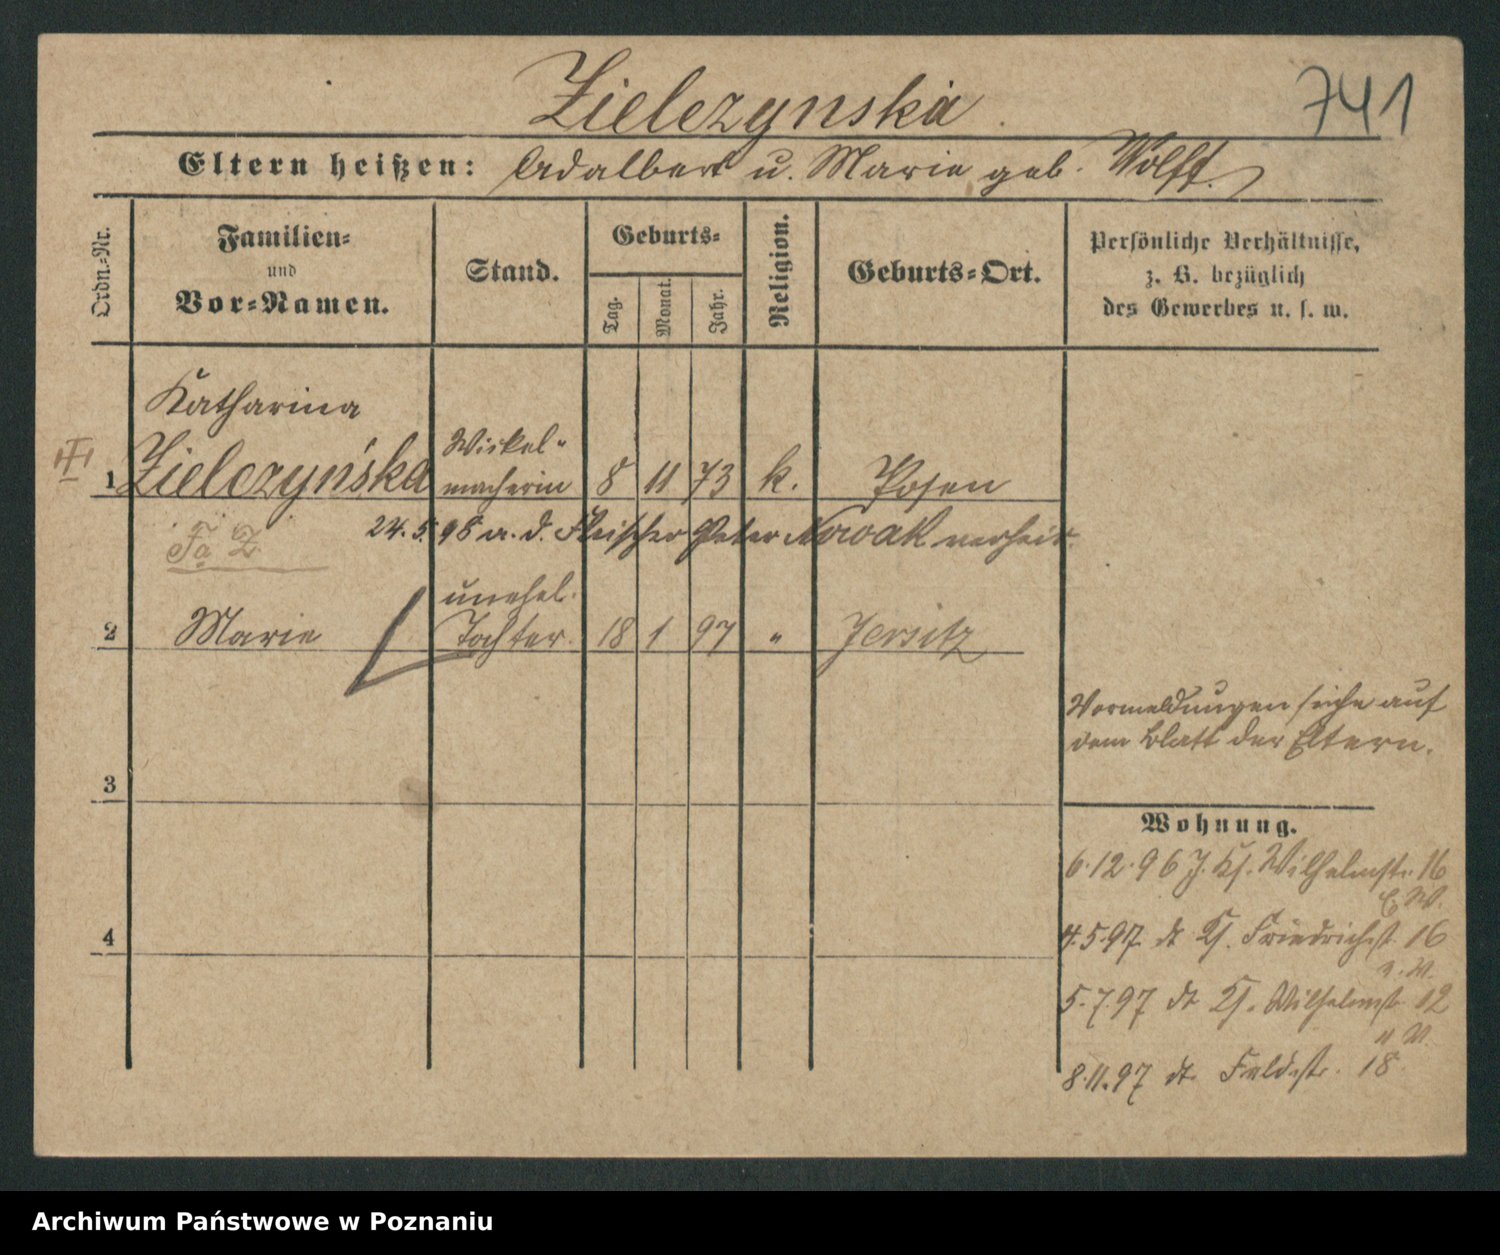 Zielezynska
741
Eltern heißen: Adalbert u. Marie geb. Wolff.
Ordn.=Nr.
Familien=
und
Vor=Namen.
Stand.
Geburts=
Tag.
Monat.
Jahr.
Religion.
Geburts=Ort.
Persönliche Verhältnisse,
z. B. bezüglich
des Gewerbes u. s. w.
Katharina
1 Zielezyńska Wickel- macherin 8 11 73 k. Posen
24.5.98 a. d. Fleischer Peter Nowak verheir.
Fa Z
2 Marie unehel. Tochter 18 1 97 " Jersitz
Vormeldungen siehe auf
dem Blatt der Eltern.
3
4
Wohnung.
6.12.96 J. Ks. Wilhelmstr. 16
4.5.97 dt Ks. Friedrichst 16
5.7.97 dt Ks. Wilhelmst 12
8.11.97 dt Feldstr. 18.
Archiwum Państwowe w Poznaniu